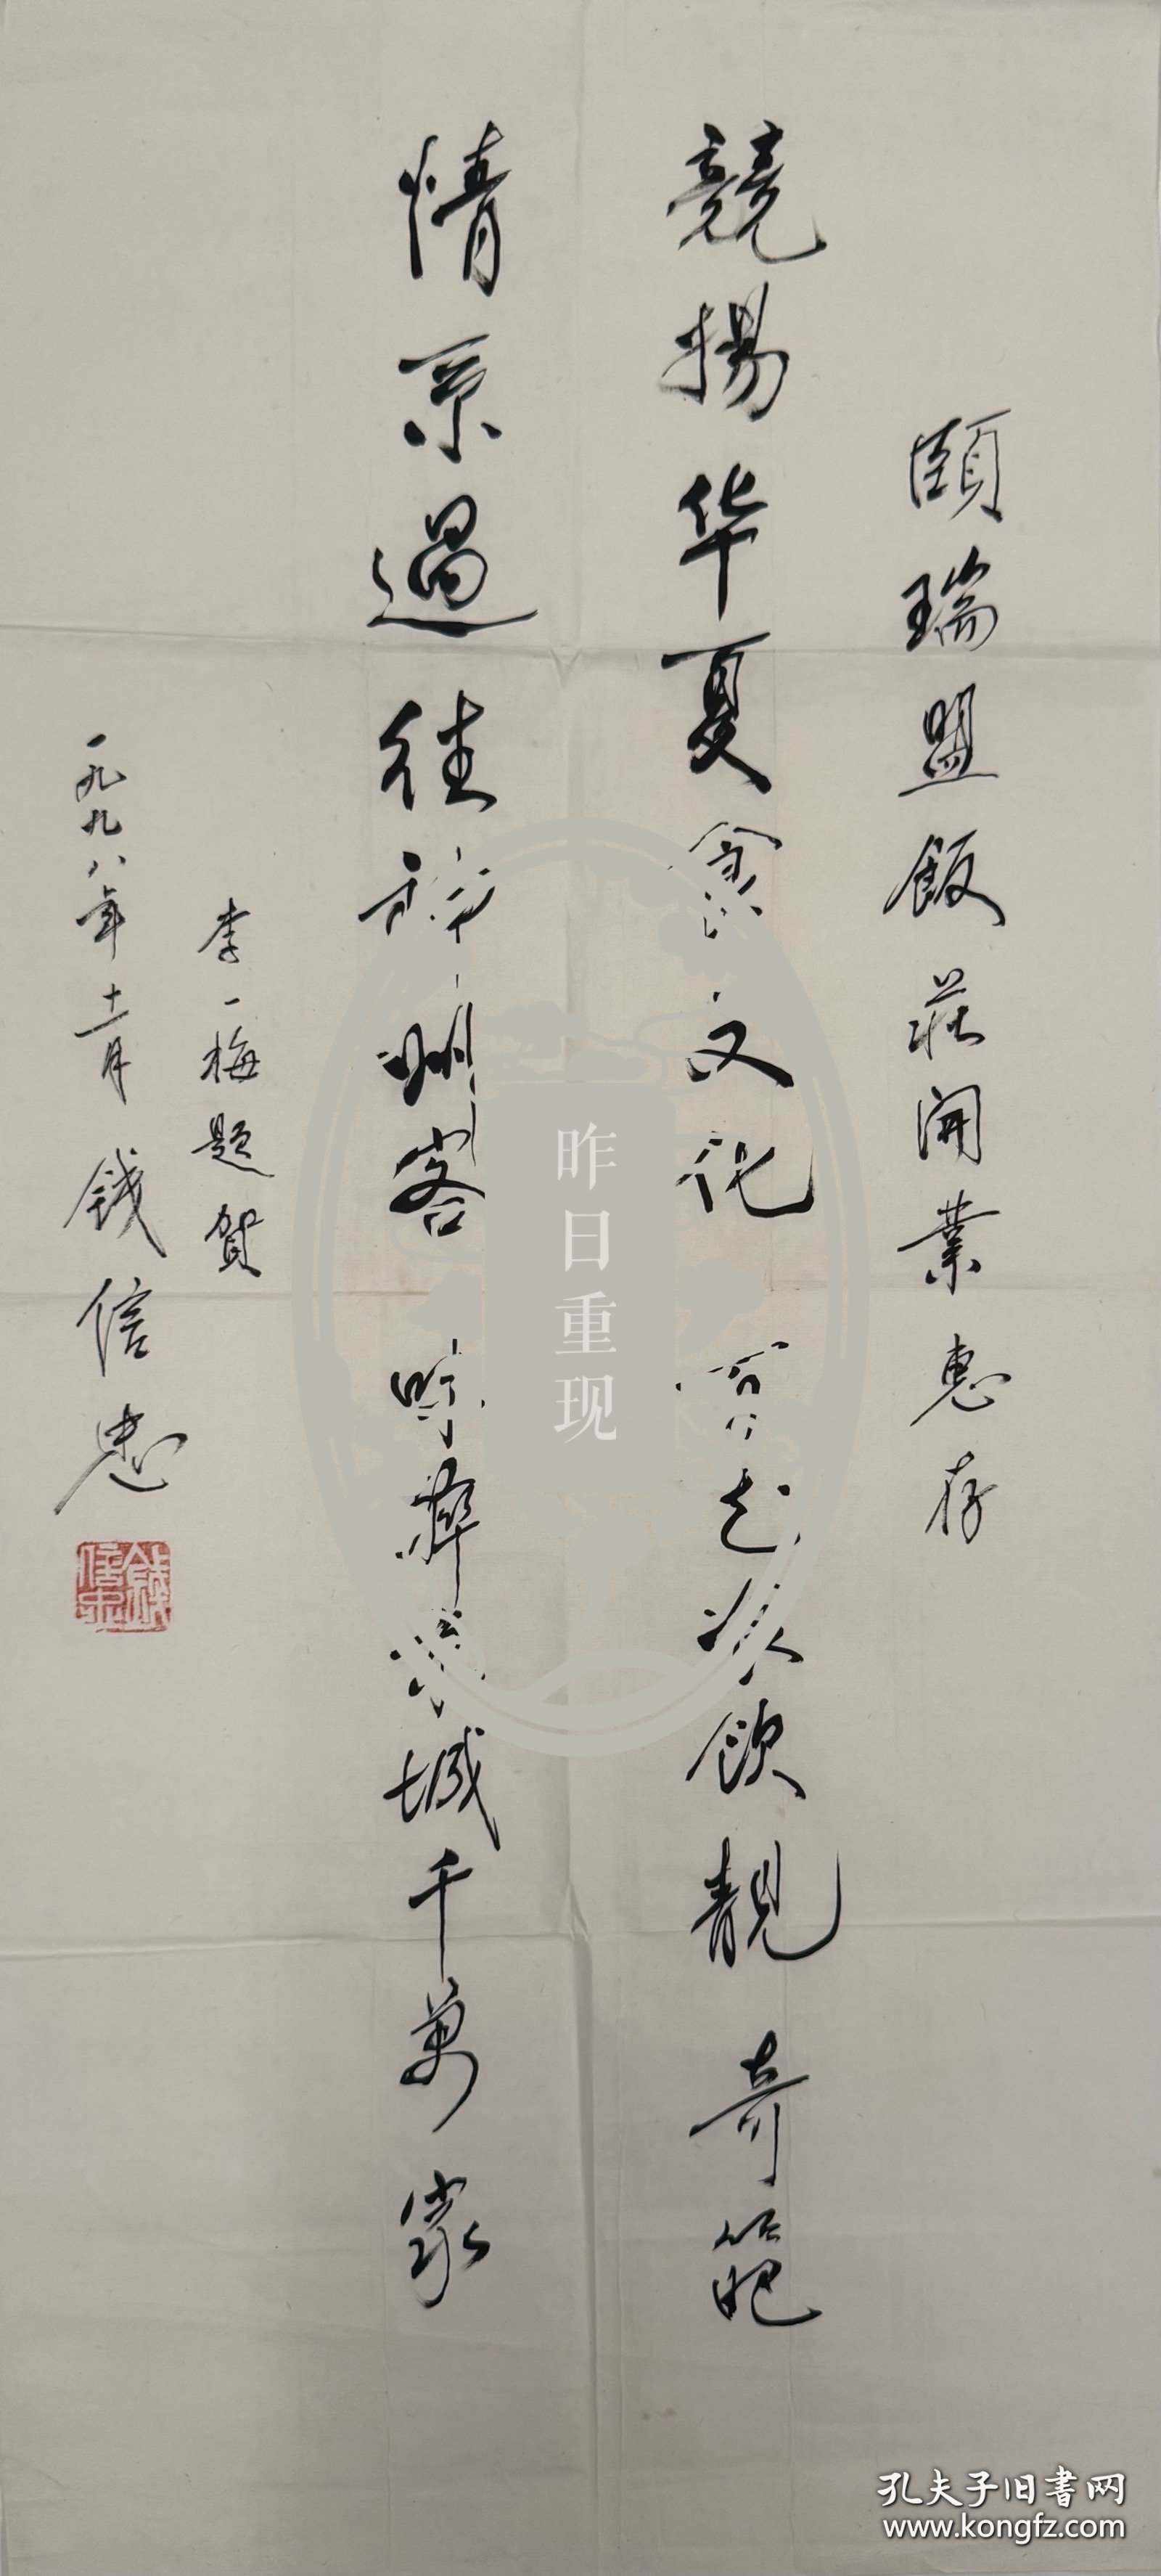 頤瑞盟飯莊開業惠存
競揚华夏食文化 飲靚奇範
情系過往神州客 京城千萬家
李一梅題賀
一九九八年十一月 钱信忠
钱信忠
昨日重现
孔夫子旧書网
www.kongfz.com